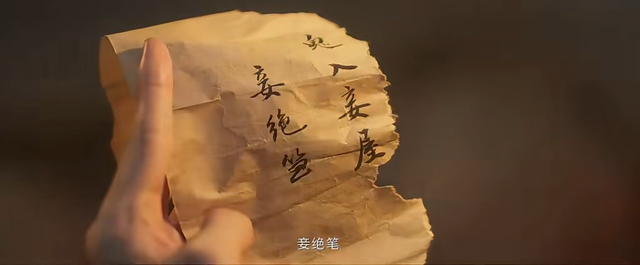 入妾屋
妾绝笔
妾绝笔